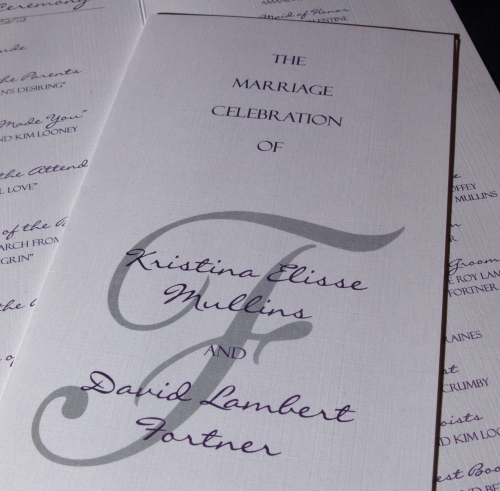 Ceremony
the Parents
Made You"
ND KIM LOONEY
the Attend
L LOVE"
of the
ARCH FROM
GRIN"
THE
MARRIAGE
CELEBRATION
OF
F
Kristina Elisse
Mullins
AND
David Lambert
Fortner
Maid of Honor
OFFEY
MULLINS
Groom
E ROY LAM
FORTNER
RAINES
CRUMBY
oists
D KIM LOO
est Boo